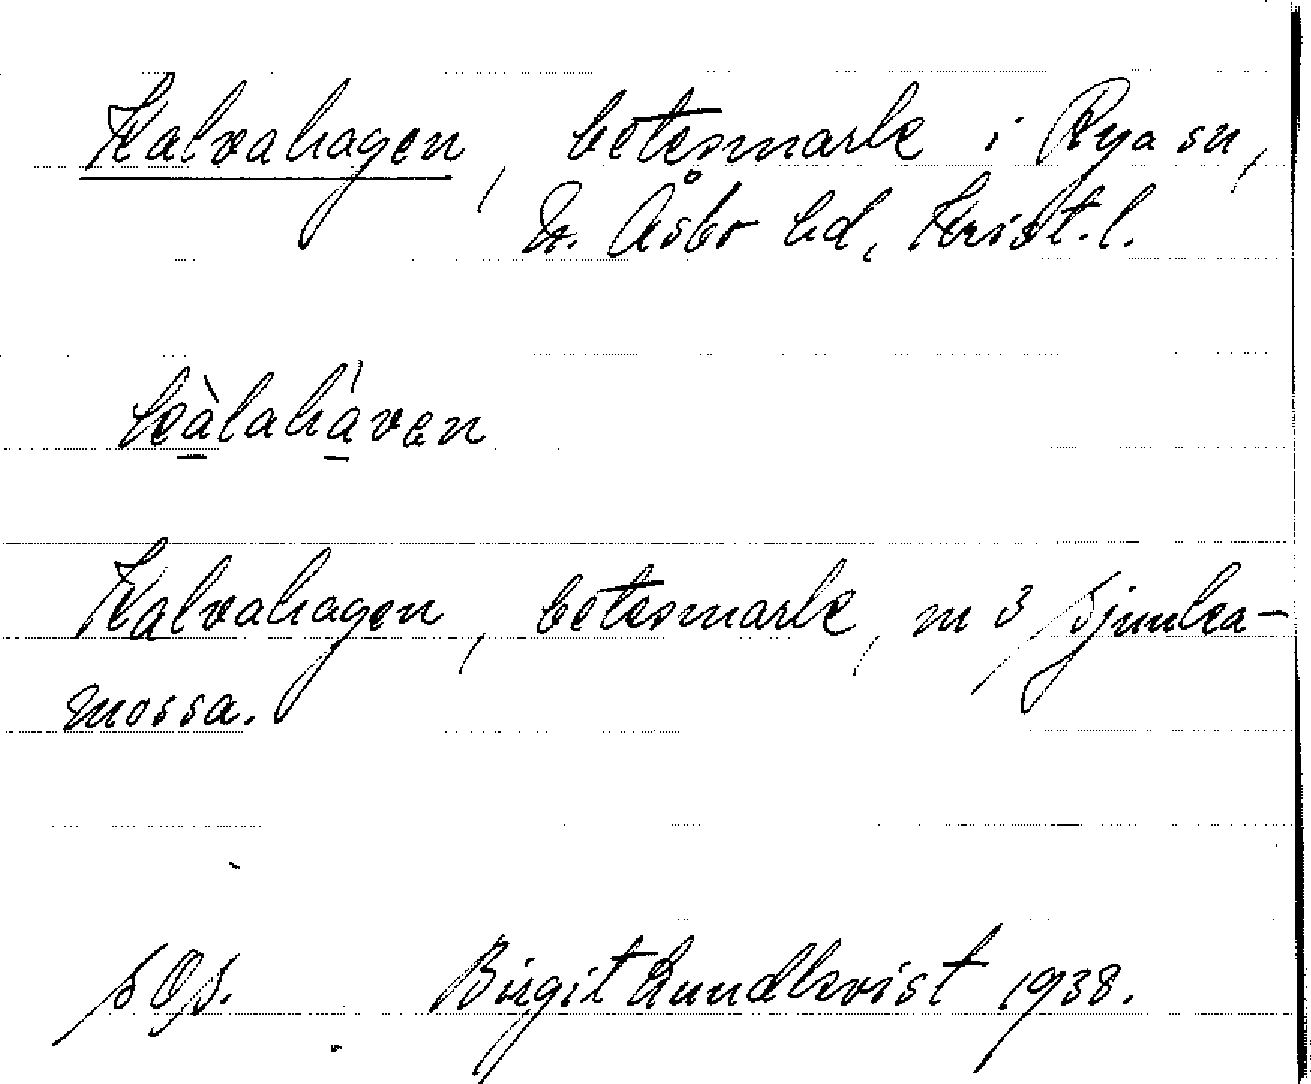 Kalvahagen, betesmark i Rya sn,
N. Åsbo hd, Krist. l.
kàlahá̀ven
Kalvahagen, betesmark, m 3 Sjunka-
mossa.
SOS. Birgit Lundkvist 1938.